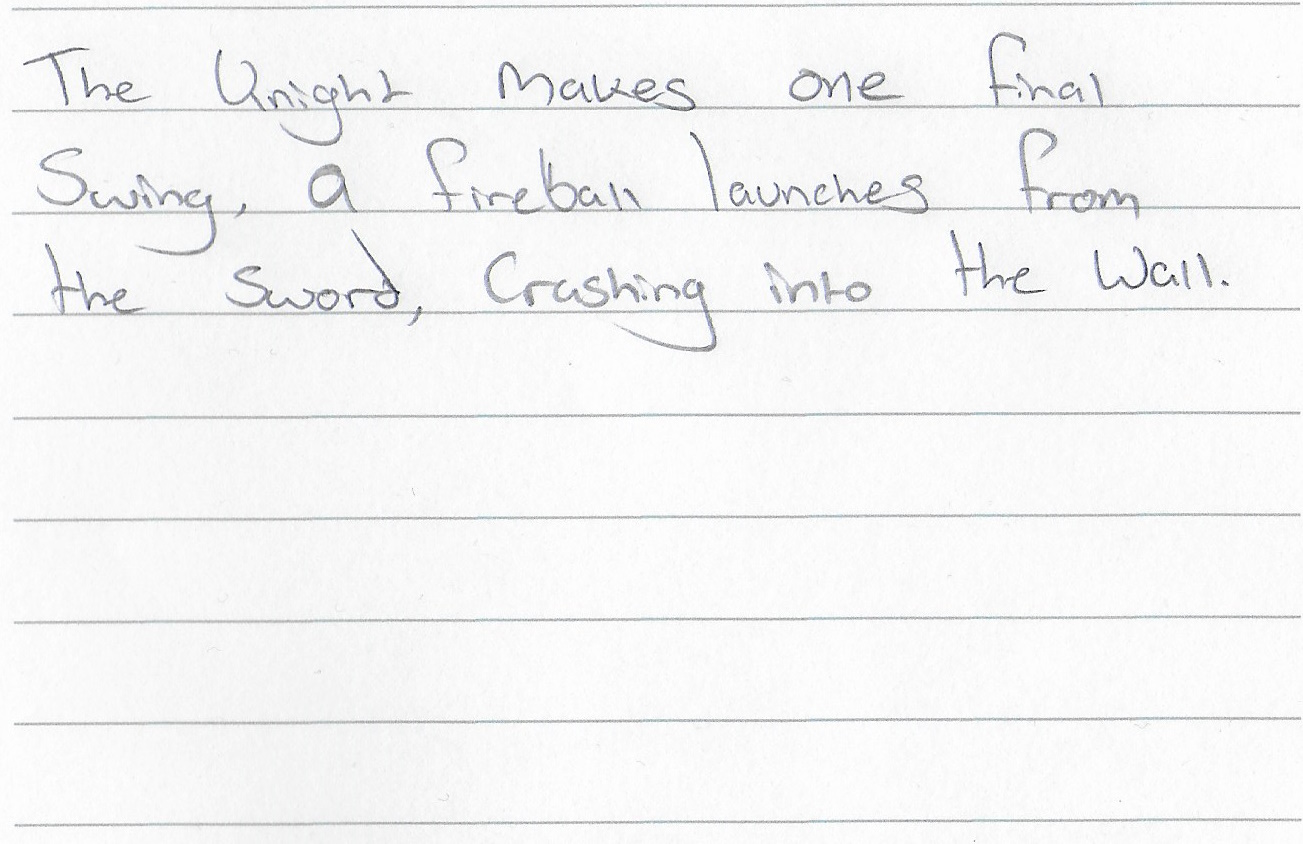 The Knight makes one final
Swing, a fireball launches from
the Sword, Crashing into the Wall.